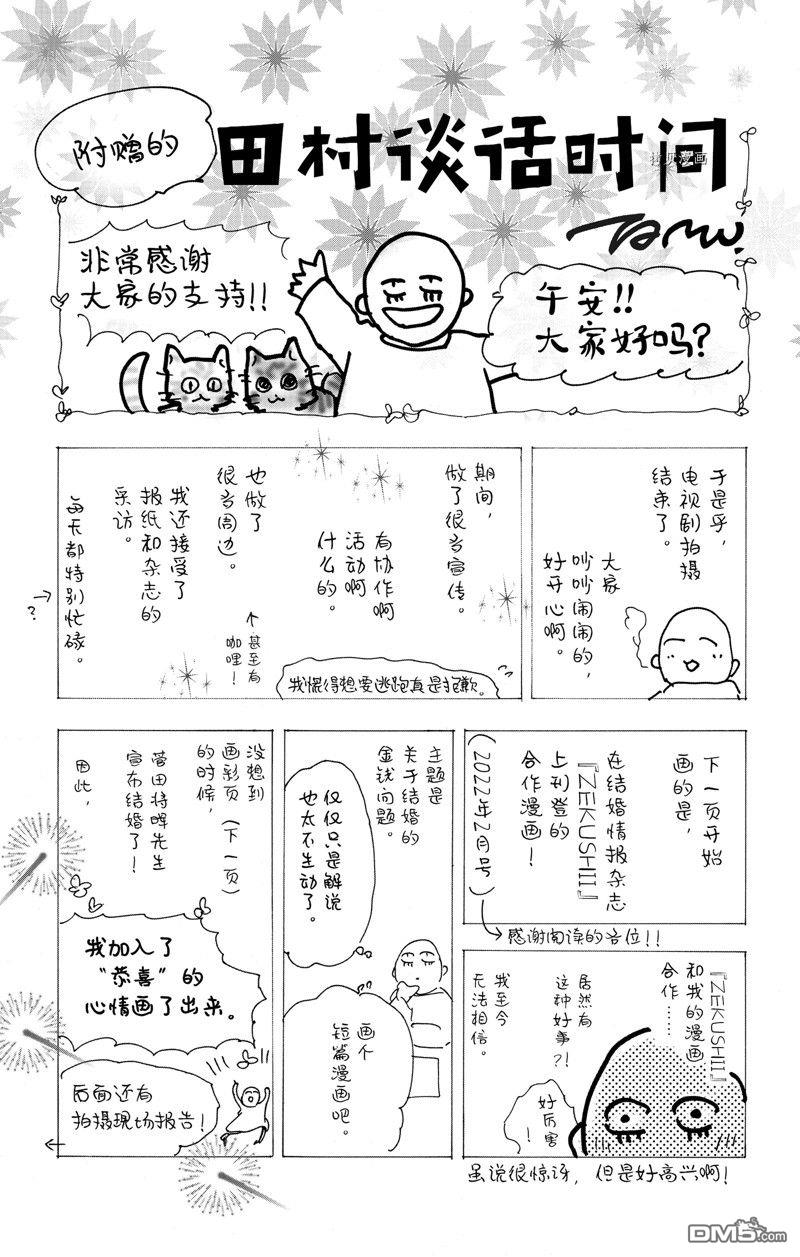 附赠的
田村谈话时间
TAMU.
非常感谢
大家的支持!!
午安!!
大家好吗?
于是乎,
电视剧拍摄
结束了。
大家
吵吵闹闹的,
好开心啊。
期间,
做了很多宣传。
有协作啊
活动啊
什么的。
也做了
很多周边。
个甚至有
咖哩!
我还接受了
报纸和杂志的
采访。
每天都特别忙碌。
?
我慌得想要逃跑真是抱歉。
下一页开始
画的是,
在结婚情报杂志
『ZEKUSHII』
上刊登的
合作漫画!
(2022年2月号)
感谢阅读的各位!!
『ZEKUSHII』
和我的漫画
合作……
居然有
这种好事?!
我至今
无法相信。
好厉害
!
虽说很惊讶,但是好高兴啊!
主题是
关于结婚的
金钱问题。
仅仅只是解说
也太不生动了。
画个
短篇漫画吧。
没想到
画彩页(下一页)
的时候,
菅田将晖先生
宣布结婚了!
因此,
我加入了
“恭喜”的
心情画了出来。
后面还有
拍摄现场报告!
DM5.com